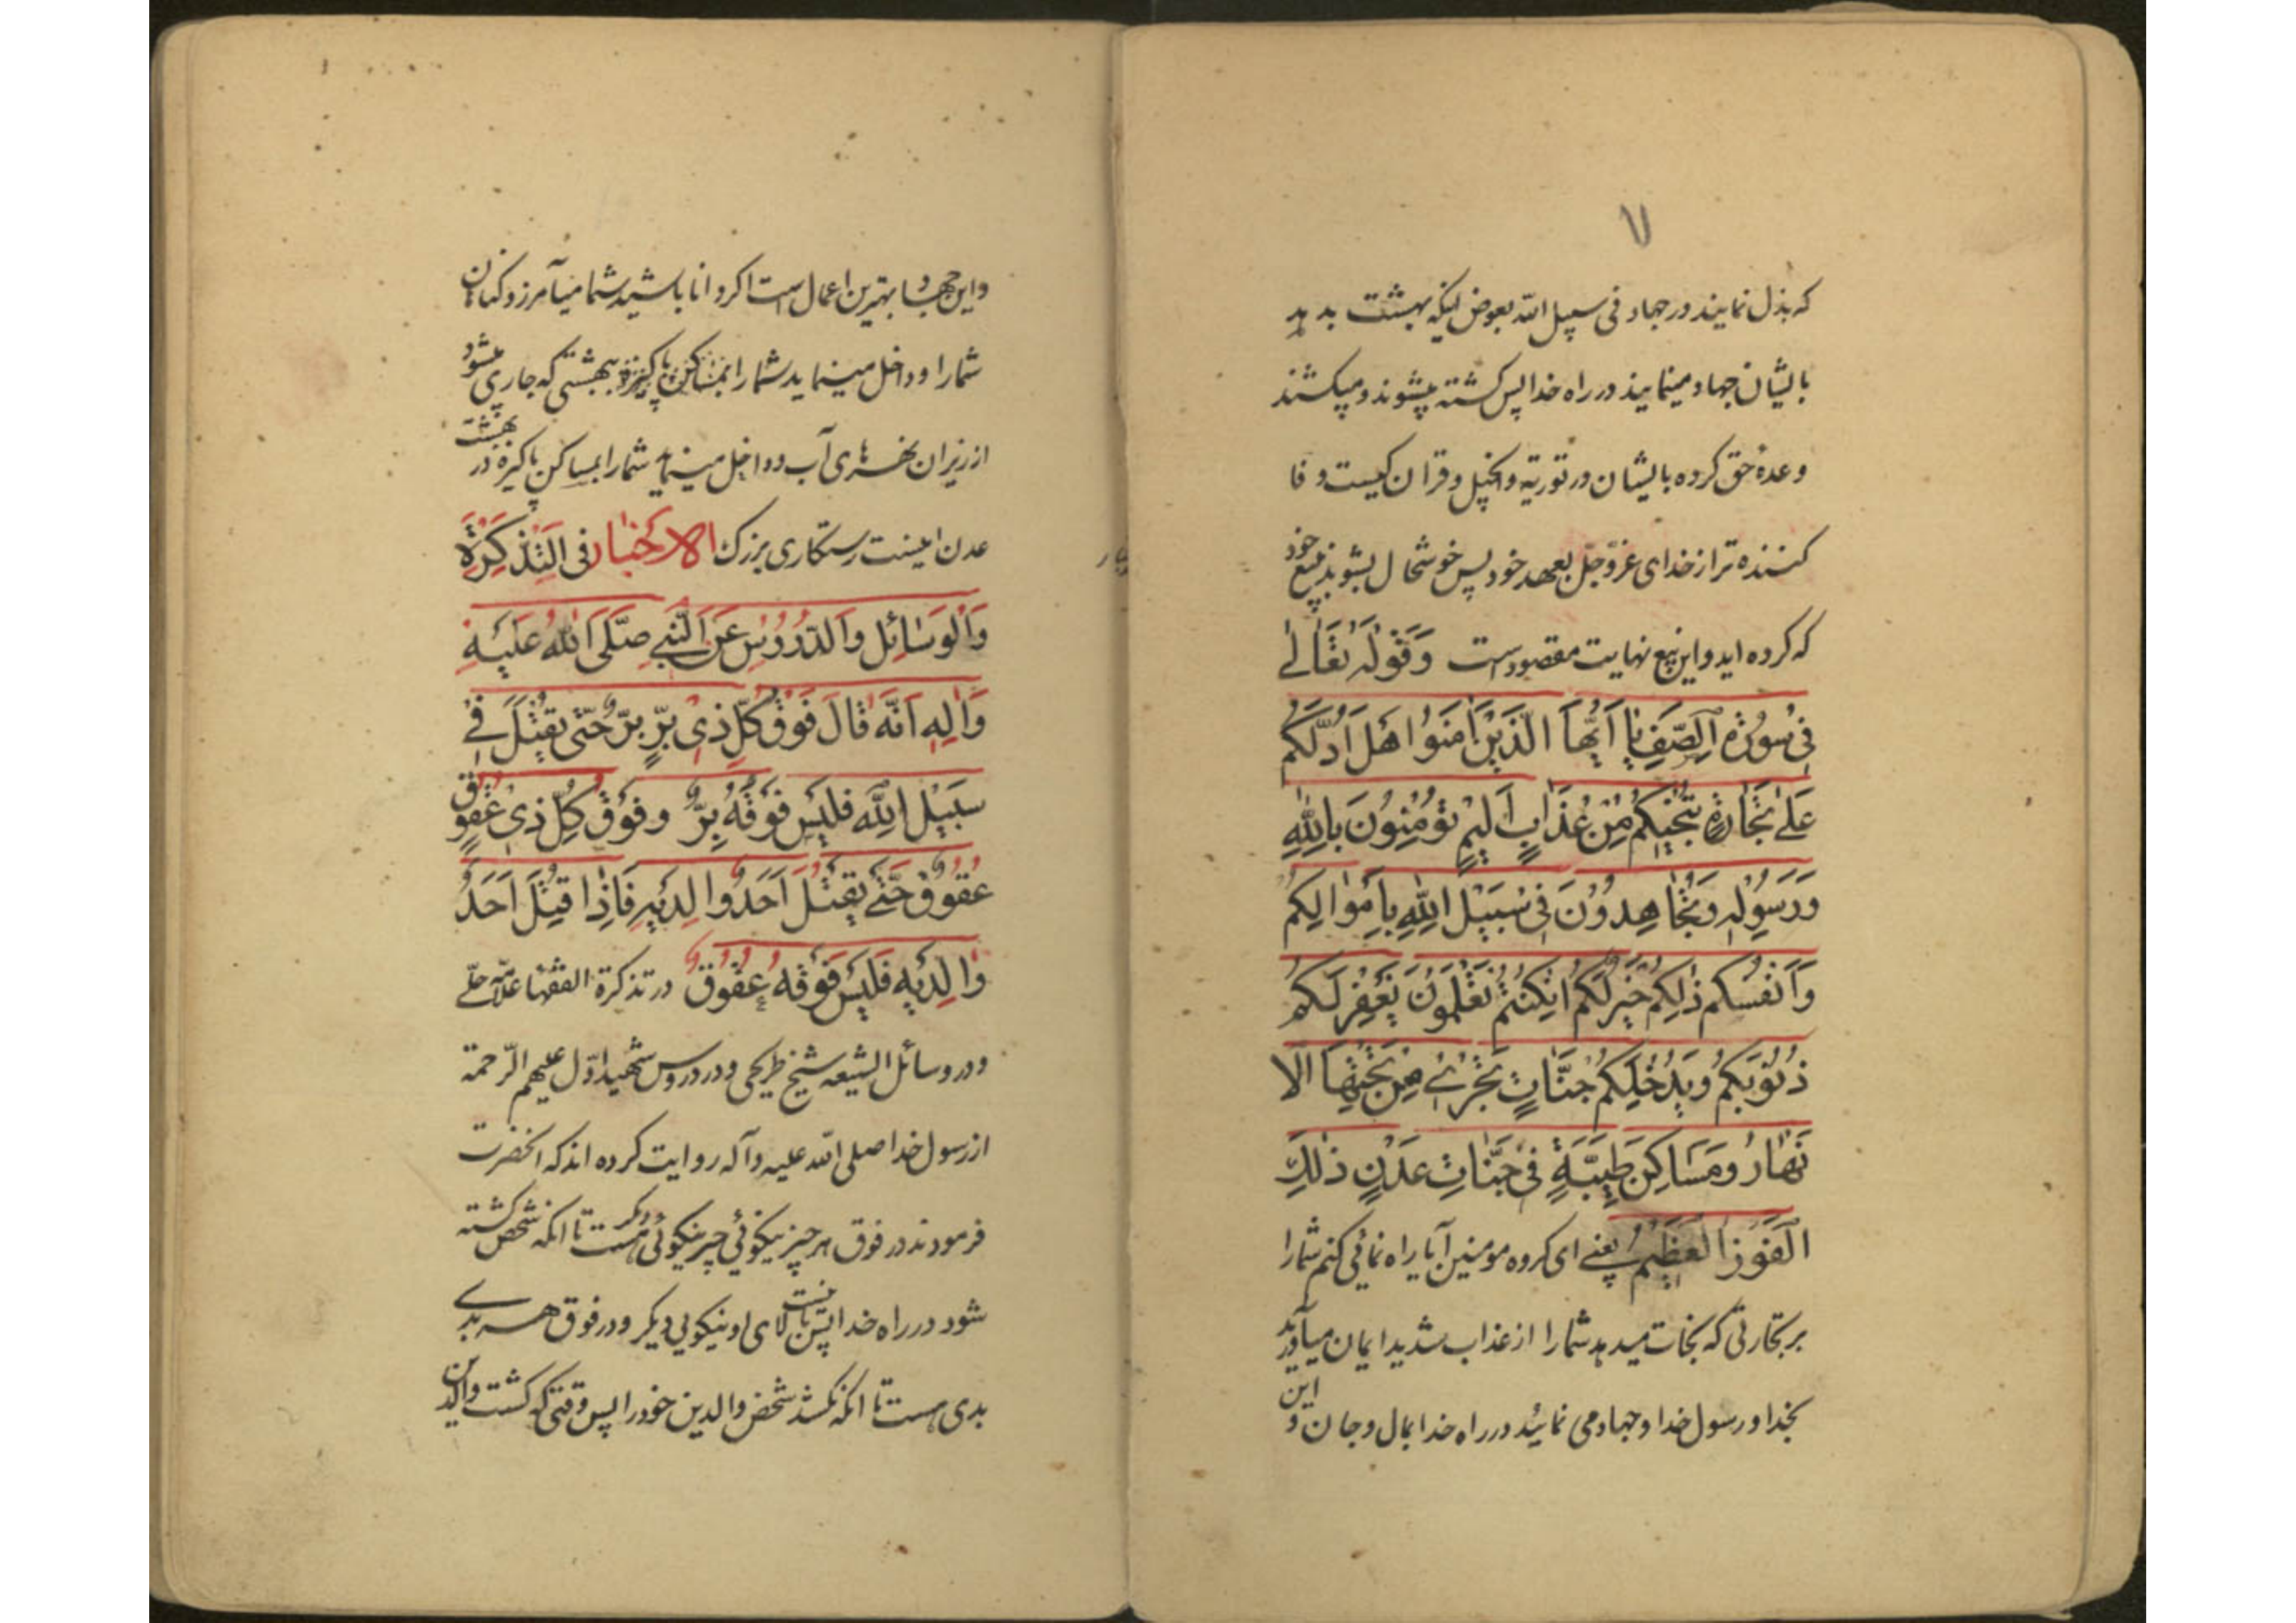 ۷
که بذل نمایند در جهاد فی سبیل الله بعوض اینکه بهشت بدهد
بایشان جهاد مینمایند در راه خدا پس کشته میشوند و میکشند
وعدهٔ حق کرده بایشان در توریة و انجیل و قران کیست وفا
کننده تر از خدای عزّ و جلّ بعهد خود پس خوشحال بشوید ببیع خود
که کرده اید و این بیع نهایت مقصود است وَقَوْلُهُ تَعَالٰی
فِی سُورَةِ الصَّفِ یٰا اَیُّهَا الَّذِیْنَ اٰمَنُوا هَلْ اَدُلُّکُمْ
عَلٰی تِجٰارَةٍ تُنْجِیکُمْ مِنْ عَذٰابٍ اَلِیمٍ تُؤْمِنُونَ بِاللّٰهِ
وَرَسُولِهِ وَتُجٰاهِدُوْنَ فِی سَبِیْلِ اللّٰهِ بِاَمْوٰالِکُمْ
وَاَنْفُسِکُمْ ذٰلِکُمْ خَیْرٌ لَکُمْ اِنْکُنْتُمْ تَعْلَمُوْنَ یَغْفِرْ لَکُمْ
ذُنُوْبَکُمْ وَیُدْخِلْکُمْ جَنَّاتٍ تَجْرِیْ مِنْ تَحْتِهَا الْاَ
نْهٰارُ وَمَسٰاکِنَ طَیِّبَةٍ فِی جَنّٰاتِ عَدْنٍ ذٰلِکَ
الْفَوْزُ الْعَظِیْمُ یعنے ای کروه مومنین آیا راه نمائی کنم شما را
بر تجارتی که نجات میدهد شما را از عذاب شدید ایمان میآورید
بخدا و رسول خدا و جهاد می نمائید در راه خدا بمال و جان و این
و این جهاد بهترین اعمال است اکر دانا باشید شما میآمرزد کناهان
شما را و داخل مینماید شما را بمساکن پاکیزه و ببهشتی که جاری میشود
از زیر ان نهرهای آب و داخل مینماید شما را بمساکن پاکیزه در بهشت
عدن اینست رستکاری بزرک الاَخْبار فی التَّذْکِرَةِ
وَالْوَسٰائِلِ وَالدُّرُوْسِ عَنِ النَّبِیِ صَلَّی اللّٰهُ عَلَیْهِ
وَاٰلِهِ اَنَّهُ قٰالَ فَوْقَ کُلِّ ذِیْ بِرٍّ بِرٌّ حَتّٰی یُقْتَلَ فِی
سَبِیْلِ اللّٰهِ فَلَیْسَ فَوْقَهُ بِرٌّ وَفَوْقَ کُلِّ ذِیْ عُقُوْقٍ
عُقُوْقٌ حَتّٰی یَقْتُلَ اَحَدَ وٰالِدَیْهِ فَاِذٰا قَتَلَ اَحَدَ
وٰالِدَیْهِ فَلَیْسَ فَوْقَهُ عُقُوْقٌ در تذکرة الفقها علامّه حلّی
و در وسائل الشیعه شیخ طریحی و در دروس شهید اوّل علیهم الرّحمة
از رسول خدا صلی الله علیه و آله روایت کرده اند که انحضرت
فرمودند در فوق هر چیز نیکوئی چیز نیکوئی دیکر هست تا انکه شخص کشته
شود در راه خدا پس نیست بالای او نیکویی دیکر و در فوق هر بدی
بدی هست تا انکه بکشد شخص والدین خود را پس وقتی که کشت والدین